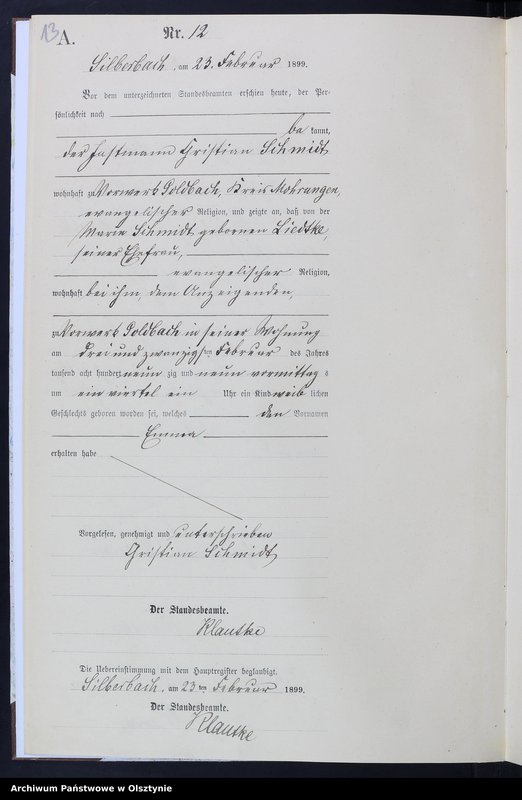 13
A.
Nr. 12
Silberbach, am 23. Februar 1899.
Vor dem unterzeichneten Standesbeamten erschien heute, der Per-
sönlichkeit nach
be kannt,
der Instmann Christian Schmidt
wohnhaft zu Vorwerk Goldbach, Kreis Mohrungen,
evangelischer Religion, und zeigte an, daß von der
Marie Schmidt gebornen Liedtke,
seiner Ehefrau,
evangelischer Religion,
wohnhaft bei ihm, dem Anzeigenden,
zu Vorwerk Goldbach in seiner Wohnung
am drei und zwanzigsten Februar des Jahres
tausend acht hundert neun zig und neun vormittag s
um ein viertel ein Uhr ein Kind weib lichen
Geschlechts geboren worden sei, welches den Vornamen
Emma
erhalten habe
Vorgelesen, genehmigt und unterschrieben
Christian Schmidt
Der Standesbeamte.
Klautke
Die Uebereinstimmung mit dem Hauptregister beglaubigt.
Silberbach, am 23 ten Februar 1899.
Der Standesbeamte.
Klautke
Archiwum Państwowe w Olsztynie